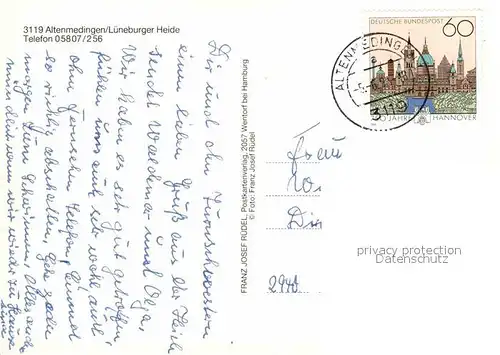 3119 Altenmedingen/Lüneburger Heide
Telefon 05807/256
Dir und den Turnschwestern
einen lieben Gruß aus der Heide
sendet Waldemar und Olga.
Wir haben es sehr gut getroffen,
fühlen uns auch sehr wohl auch
ohne Fernsehen Telefon, Einmal
so richtig abschalten, Jede
morgen zum Schwimmen, alles
wenn wir wieder zu Hause
sind
FRANZ JOSEF RÜDEL, Postkartenverlag, 2057 Wentorf bei Hamburg
© Foto: Franz Josef Rüdel
DEUTSCHE BUNDESPOST
60
JAHRE HANNOVER
ALTENMEDINGEN
a
3119
Frau
Dir
2940
privacy protection
Datenschutz